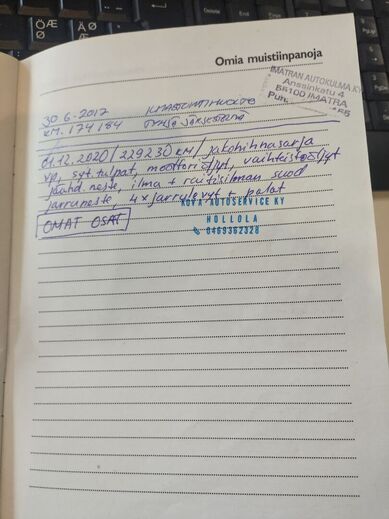 Omia muistiinpanoja
IMATRAN AUTOKULMA KY
Anssinkatu 4
55100 IMATRA
Puh.
30.6.2017 ILMASTOINTIHUOLTO
KM. 174184
01.12.2020 / 229230 KM / jakohihnasarja
vp, syt.tulpat, moottoriöljyt, vaihteistoöljyt
jäähd.neste, ilma + raitisilman suod
jarruneste, 4x jarrulevyt + palat
OMAT OSAT
KOVA AUTOSERVICE KY
HOLLOLA
0469362328